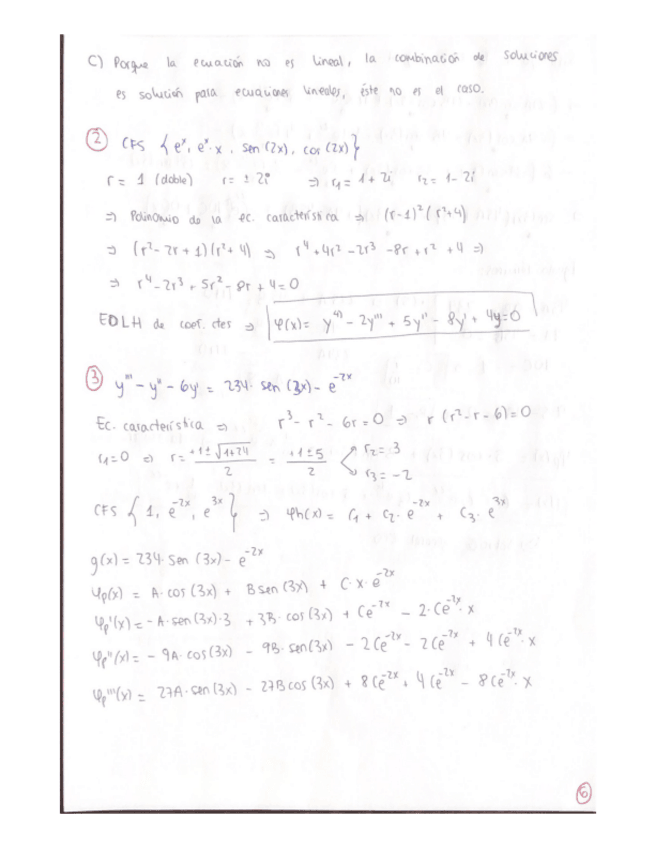 c) Porque la ecuación no es lineal, la combinación de soluciones
es solución para ecuaciones lineales, éste no es el caso.
② CFS { eˣ, eˣ·x, sen (2x), cos (2x) }
r = 1 (doble) r = ± 2i ⇒ r₁ = 1 + 2i r₂ = 1 - 2i
⇒ Polinomio de la ec. característica ⇒ (r-1)² (r²+4)
⇒ (r² - 2r + 1)(r² + 4) ⇒ r⁴ + 4r² - 2r³ - 8r + r² + 4 ⇒
⇒ r⁴ - 2r³ + 5r² - 8r + 4 = 0
EDLH de coef. ctes ⇒ φ(x) = y⁴⁾ - 2y''' + 5y'' - 8y' + 4y = 0
③ y''' - y'' - 6y' = 234· sen (3x) - e⁻²ˣ
Ec. característica ⇒ r³ - r² - 6r = 0 ⇒ r (r² - r - 6) = 0
r₁ = 0 ⇒ r = (+1 ± √(1+24))/2 = (+1 ± 5)/2 r₂ = 3
r₃ = -2
CFS { 1, e⁻²ˣ, e³ˣ } ⇒ φh(x) = C₁ + C₂· e⁻²ˣ + C₃· e³ˣ
g(x) = 234· sen (3x) - e⁻²ˣ
φp(x) = A· cos (3x) + B sen (3x) + C· x· e⁻²ˣ
φp'(x) = - A· sen (3x)· 3 + 3B· cos (3x) + Ce⁻²ˣ - 2· Ce⁻²ˣ· x
φp''(x) = - 9A· cos (3x) - 9B· sen (3x) - 2Ce⁻²ˣ - 2Ce⁻²ˣ + 4Ce⁻²ˣ· x
φp'''(x) = 27A· sen (3x) - 27B cos (3x) + 8Ce⁻²ˣ + 4Ce⁻²ˣ - 8Ce⁻²ˣ· x
⑥